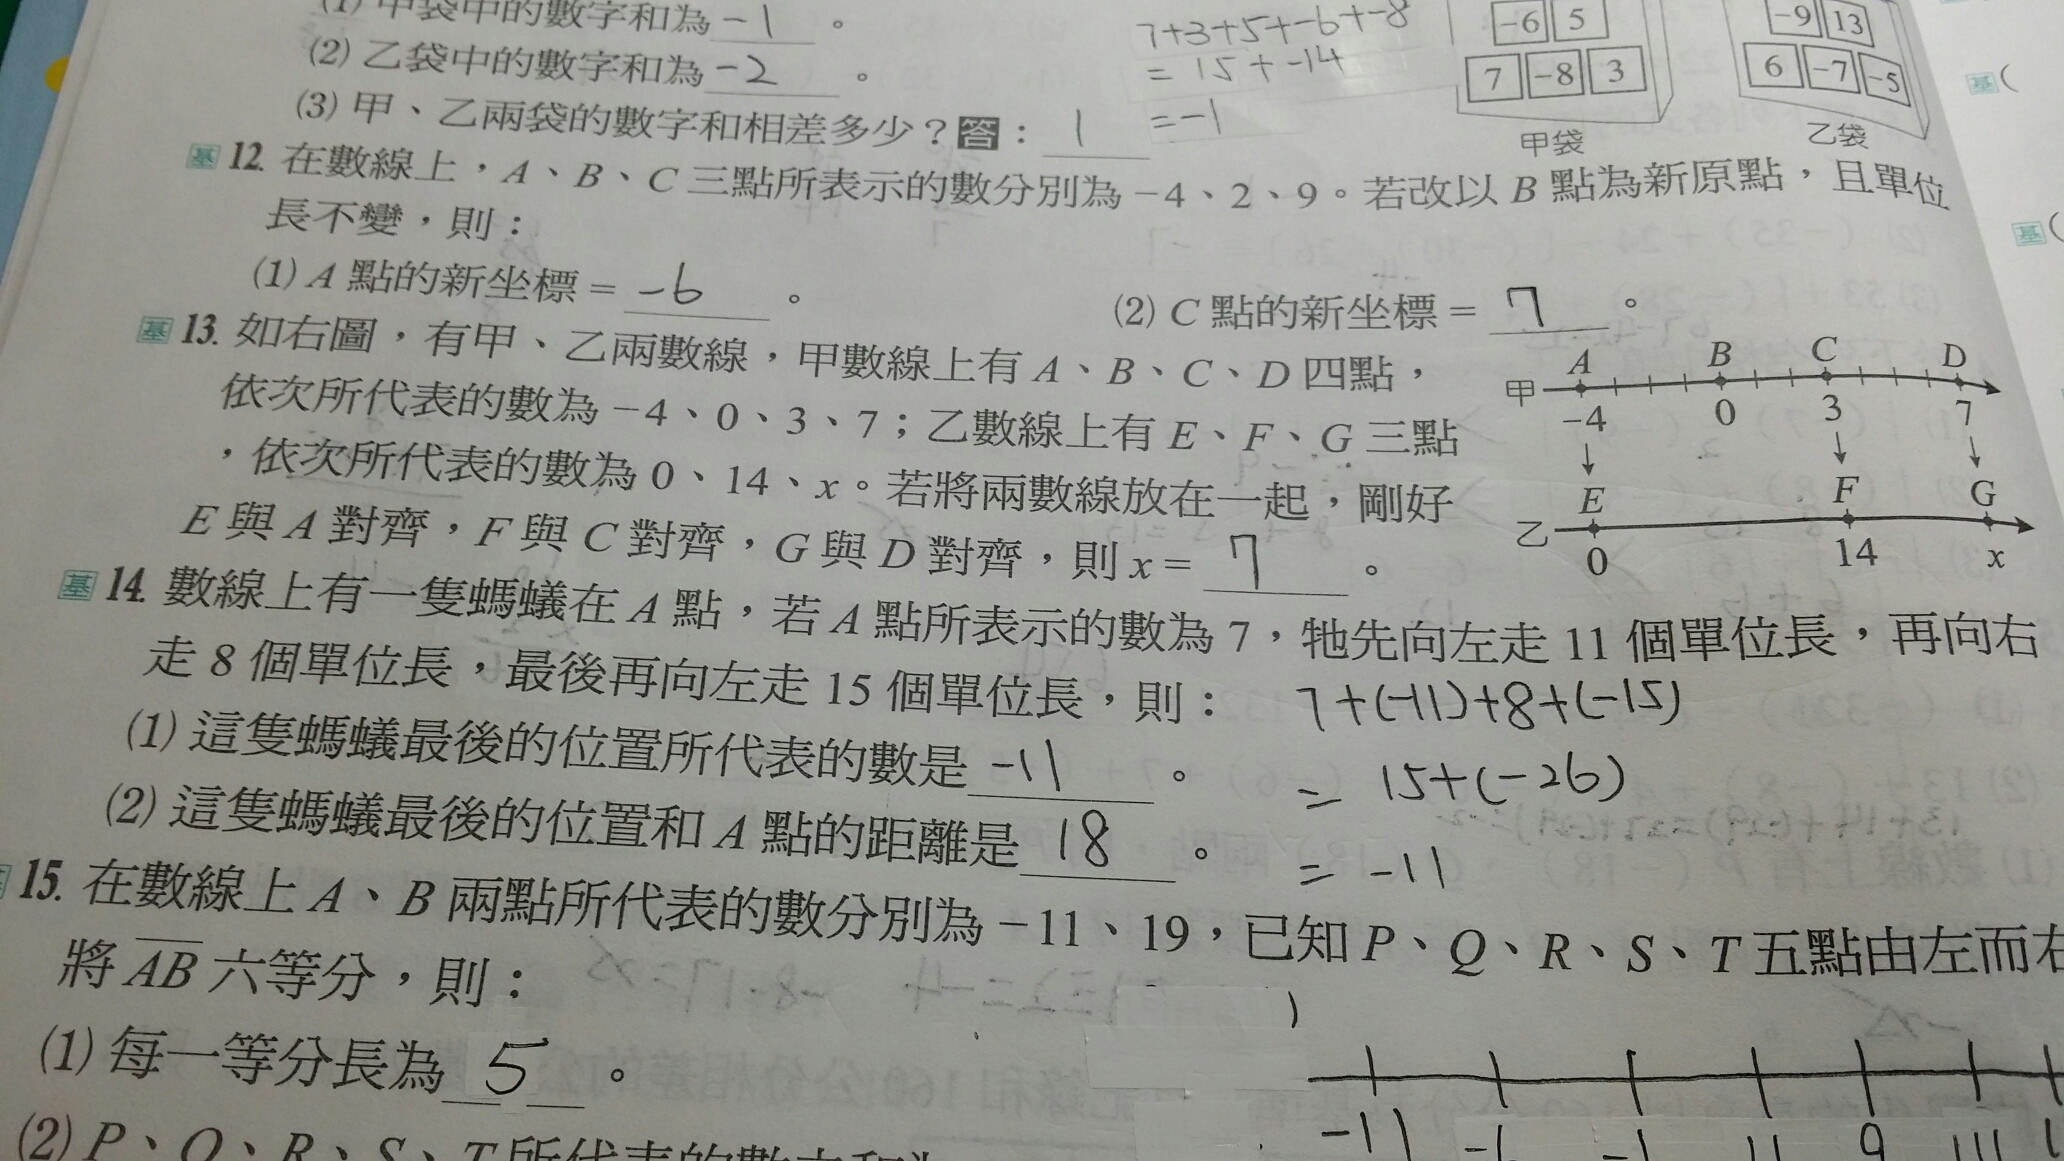 (1) 甲袋中的數字和為 -1 。
(2) 乙袋中的數字和為 -2 。
(3) 甲、乙兩袋的數字和相差多少？答： 1
7+3+5+-6+-8
= 15+-14
=-1
-6 5
7 -8 3
甲袋
-9 13
6 -7 -5
乙袋
基 12. 在數線上，A、B、C 三點所表示的數分別為 -4、2、9。若改以 B 點為新原點，且單位
長不變，則：
(1) A 點的新坐標 = -6 。
(2) C 點的新坐標 = 7 。
基 13. 如右圖，有甲、乙兩數線，甲數線上有 A、B、C、D 四點，
依次所代表的數為 -4、0、3、7；乙數線上有 E、F、G 三點
，依次所代表的數為 0、14、x。若將兩數線放在一起，剛好
E 與 A 對齊，F 與 C 對齊，G 與 D 對齊，則 x = 7 。
A B C D
甲
-4 0 3 7
E F G
乙
0 14 x
基 14. 數線上有一隻螞蟻在 A 點，若 A 點所表示的數為 7，牠先向左走 11 個單位長，再向右
走 8 個單位長，最後再向左走 15 個單位長，則：
(1) 這隻螞蟻最後的位置所代表的數是 -11 。
(2) 這隻螞蟻最後的位置和 A 點的距離是 18 。
7+(-11)+8+(-15)
= 15+(-26)
= -11
15. 在數線上 A、B 兩點所代表的數分別為 -11、19，已知 P、Q、R、S、T 五點由左而右
將 AB 六等分，則：
(1) 每一等分長為 5 。
(2) P、Q、R、S、T 所代表的數
-11
基 (
基 (